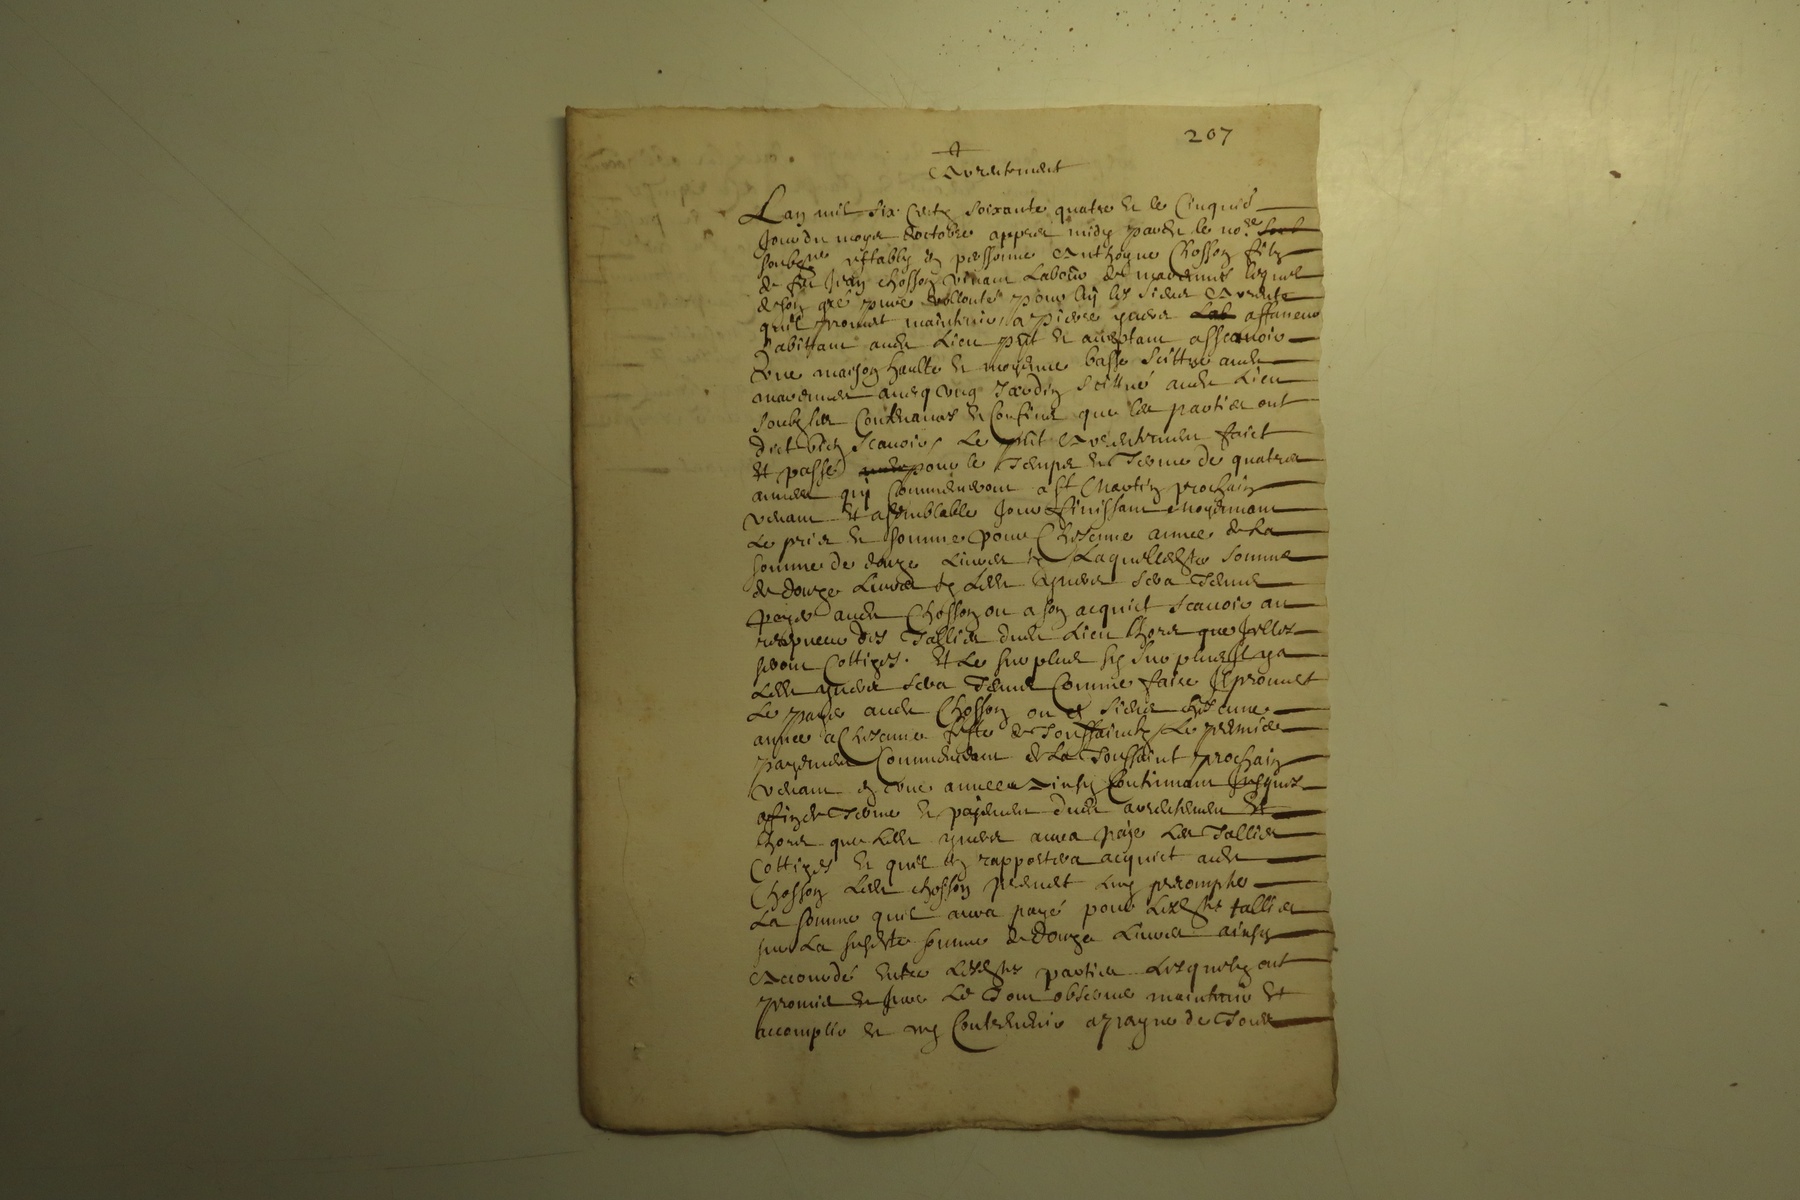 207
Arrentement
Lan mil six centz soixante quatre et le cinquie
jour du moys doctobre appres midy par de le no.re
soubz ne estably en personne Anthoyne Chosson filz
de fu Jean Chosson vivant labour de lequel
de son gré pure vollonté pour luy les siens arrente
quil promet maintenir a Pierre affaneur
habittant aud lieu pnt et aceptant asscavoir
Une maison haulte et moyenne basse scittué aud
avecq ung jardin scittué aud lieu
soubz ses contenances et confins que les parties ont
dict bien scavoir, Le pnt arrentement faict
et passé pour le temps et terme de quatre
annees quy commenseront a st Martin prochain
venant et a semblable jour finissant moyenant
le pris et somme pour chascune annee de la
somme de douze livres tz laquelle dte somme
de douze livres tz led sera tenu
payer aud Chosson ou a son acquict scavoir au
des tallies dud lieu lhors que jelles
seront cottizes. Et le surplus sy surplus jl ya
led sera tenu comme faire jl promet
le payer aud Chosson ou es siens chascune
annee a chascune feste de Toussainctz le premier
payement commensant de la Toussaint prochain
venant en une annee ainsy continuant jusques
a fin de terme et payement dud arrentement Et
lhors que led aura paye les tallies
cottizes et quil en rapportera acquict aud
Chosson led Chosson promet luy precompter
la somme quil aura payé pour lesdtes tallies
sur la susdte somme de douze livres ainsy
accourdé entre lesdtes parties lesquelz ont
promis et juré le tout observer maintenir et
accomplir et ny contrevenir a payne de tous